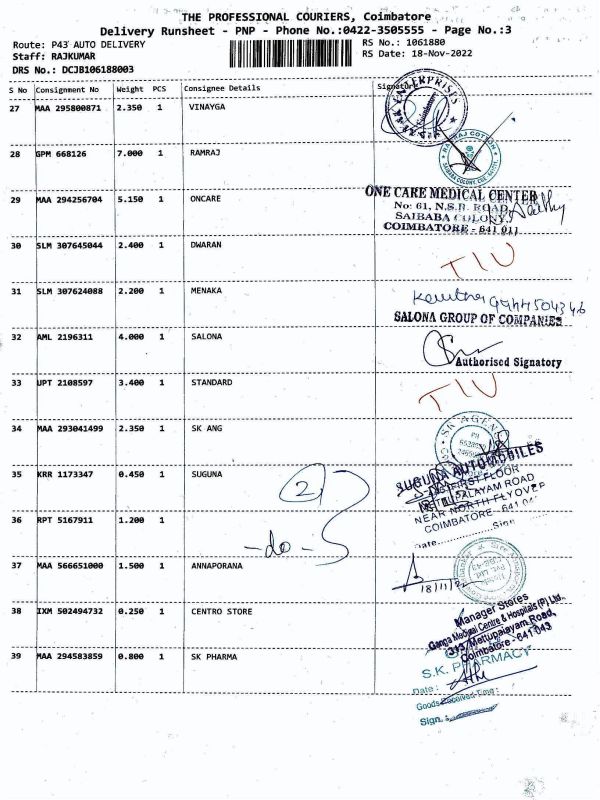 THE PROFESSIONAL COURIERS, Coimbatore
Delivery Runsheet - PNP - Phone No.:0422-3505555 - Page No.:3
Route: P43 AUTO DELIVERY
RS No.: 1061880
Staff: RAJKUMAR
RS Date: 18-Nov-2022
DRS No.: DCJB106188003
S No Consignment No Weight PCS Consignee Details Signature
27 MAA 295800871 2.350 1 VINAYGA
ENTERPRISES
Coimbatore
28 GPM 668126 7.000 1 RAMRAJ
RAMRAJ COTTON
SAIBABA COLONY, CBE
29 MAA 294256704 5.150 1 ONCARE
ONE CARE MEDICAL CENTER
No: 61, N.S.R. ROAD,
SAIBABA COLONY,
COIMBATORE - 641 011
30 SLM 307645044 2.400 1 DWARAN
TIU
31 SLM 307624088 2.200 1 MENAKA
9944504346
SALONA GROUP OF COMPANIES
32 AML 2196311 4.000 1 SALONA
Authorised Signatory
33 UPT 2108597 3.400 1 STANDARD
TIU
34 MAA 293041499 2.350 1 SK ANG
SK AGEN
35 KRR 1173347 0.450 1 SUGUNA
2
SUGUNA AUTOMOBILES
FIRST FLOOR
METTUPALAYAM ROAD
NEAR NORTH FLYOVER
COIMBATORE - 641
Date Sign
36 RPT 5167911 1.200 1
-do-
37 MAA 566651000 1.500 1 ANNAPORANA
18/11/22
38 IXM 502494732 0.250 1 CENTRO STORE
Manager Stores
Ganga Medical Centre & Hospitals (P) Ltd.,
313, Mettupalayam Road,
Coimbatore - 641 043
39 MAA 294583859 0.800 1 SK PHARMA
S.K. PHARMACY
Date :
Goods Received Time :
Sign. :